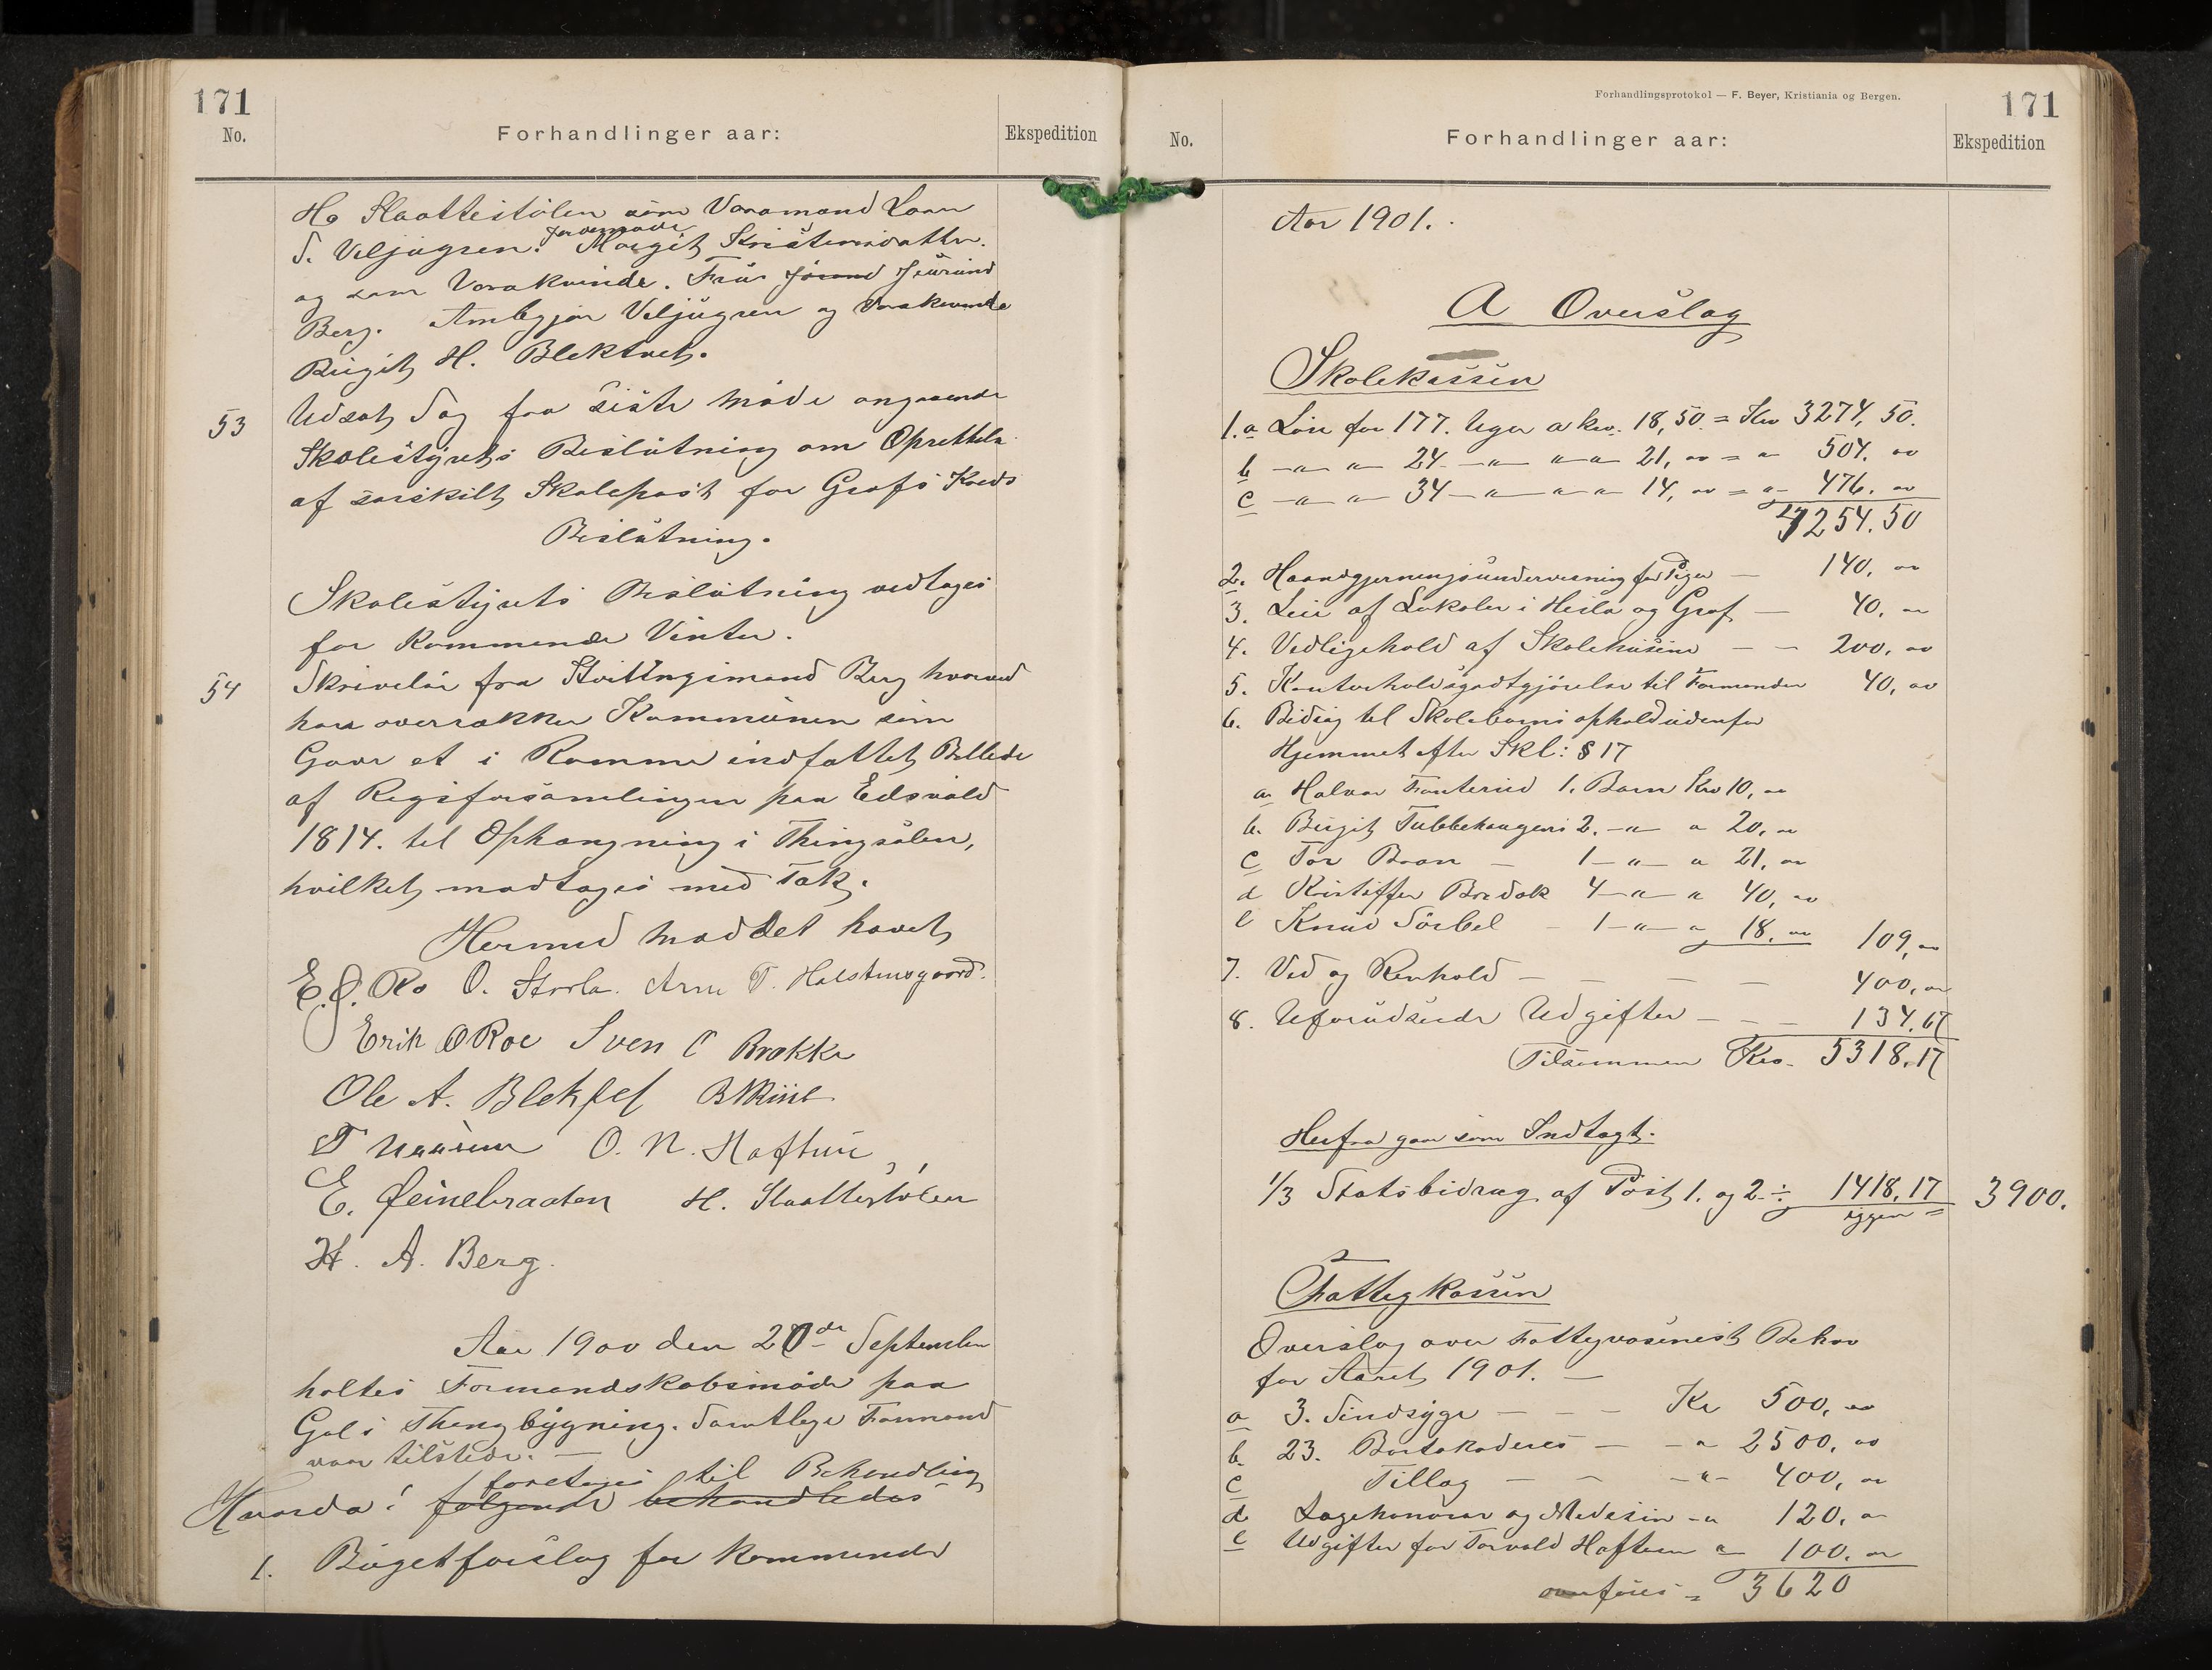 171
No.
Forhandlinger aar:
Ekspedition
H. Slaattestølen som Varamand Lars
S. Veljugren. Jordemoder Margit Kristensdatter.
og som Varakvinde. Fru Jorand Jørund
Berg. Ambjør Veljugren og Varakvinde
Birgit H. Blektvet.
53 Udsat Sag fra siste Møde angaaende
Skolestyrets Beslutning om Oprettelse
af særskilt Skolepost for Grøfs Kreds
Beslutning.
Skolestyrets Beslutning vedtages
for kommende Vinter.
54 Skrivelse fra Storthingsmand Berg hvorved
han overrækker Kommunen som
Gave et i Ramme indfattet Billede
af Rigsforsamlingen paa Eidsvold
1814. til Ophængning i Thingsalen,
hvilket modtages med Tak.
Hermed Mødet hævet
E. O. Ro O. Storla. Arne T. Halstensgaard.
Erik O Roe Sven O Brække
Ole A. Blektvet
O. N. Haftun
E. Heinebraaten H. Slaattestølen
H. A. Berg.
Aar 1900 den 20de September
holtes Formandskabsmøde paa
Gol i Thingbygning. Samtlige Formænd
var tilstede. —
foretages til Behandling
Hvorda: følgende behandledes
1. Budgetforslag for kommende
Forhandlingsprotokol — F. Beyer, Kristiania og Bergen.
171
No.
Forhandlinger aar:
Ekspedition
Aar 1901.
A Overslag
Skolekassen
1. a Løn for 177. Uger a kr. 18,50 = Kr 3274,50.
b —"— " 24 —"— " " 21, oo = " 504. oo
c —"— " 34 —"— " " 14, oo = " 476. oo
4254.50
2. Haandgjerningsundervisning for Piger — 140, oo
3. Leie af Lokaler i Heslа og Grøf — 40, oo
4. Vedligehold af Skolehusene — — 200, oo
5. Kontorholdsgodtgjørelse til Formanden 40, oo
6. Bidrag til Skolebarns ophold udenfor
Hjemmet efter Skl: § 17
a Halvor Fanterud 1. Barn Kr 10, oo
b. Birgit Tubbehaugen 2. —"— " 20, oo
c Tor Braan — 1 —"— " 21, oo
d Kristoffer Bredok 4 —"— " 40, oo
e Knud Sørbel — 1 —"— " 18, oo 109, oo
7. Ved og Renhold — — — — 400, oo
8. Uforudseede Udgifter — — — 134.67
Tilsammen Kr. 5318.17
Herfra gaar som Indtægt.
1/3 Statsbidrag af Post 1. og 2. ÷ 1418.17
igjen = 3900.
2
Fattigkassen
Overslag over Fattigvæsenets Behov
for Aaret 1901. —
a 3. Sindsyge — — — Kr 500, oo
b. 23. Bortakorderes — — " 2500, oo
c Tillæg — — —"— 400, oo
d Lægehonorar og Medesin — " 120, oo
e Udgifter for Torvald Haftun " 100. oo
overføres = 3620